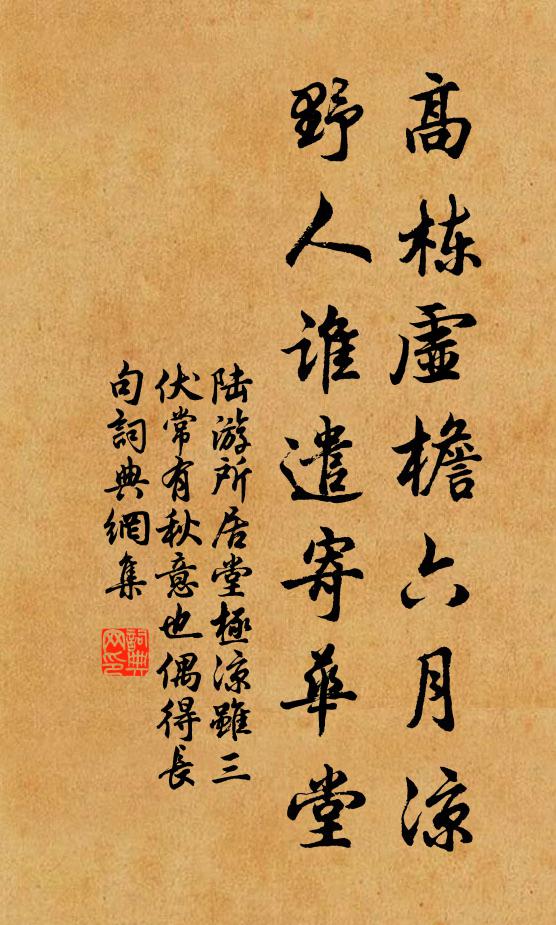 高栋虚檐六月凉
野人谁遣寄华堂
陆游所居堂極凉雖三
伏常有秋意也偶得长
句詞典網集
詞典网印